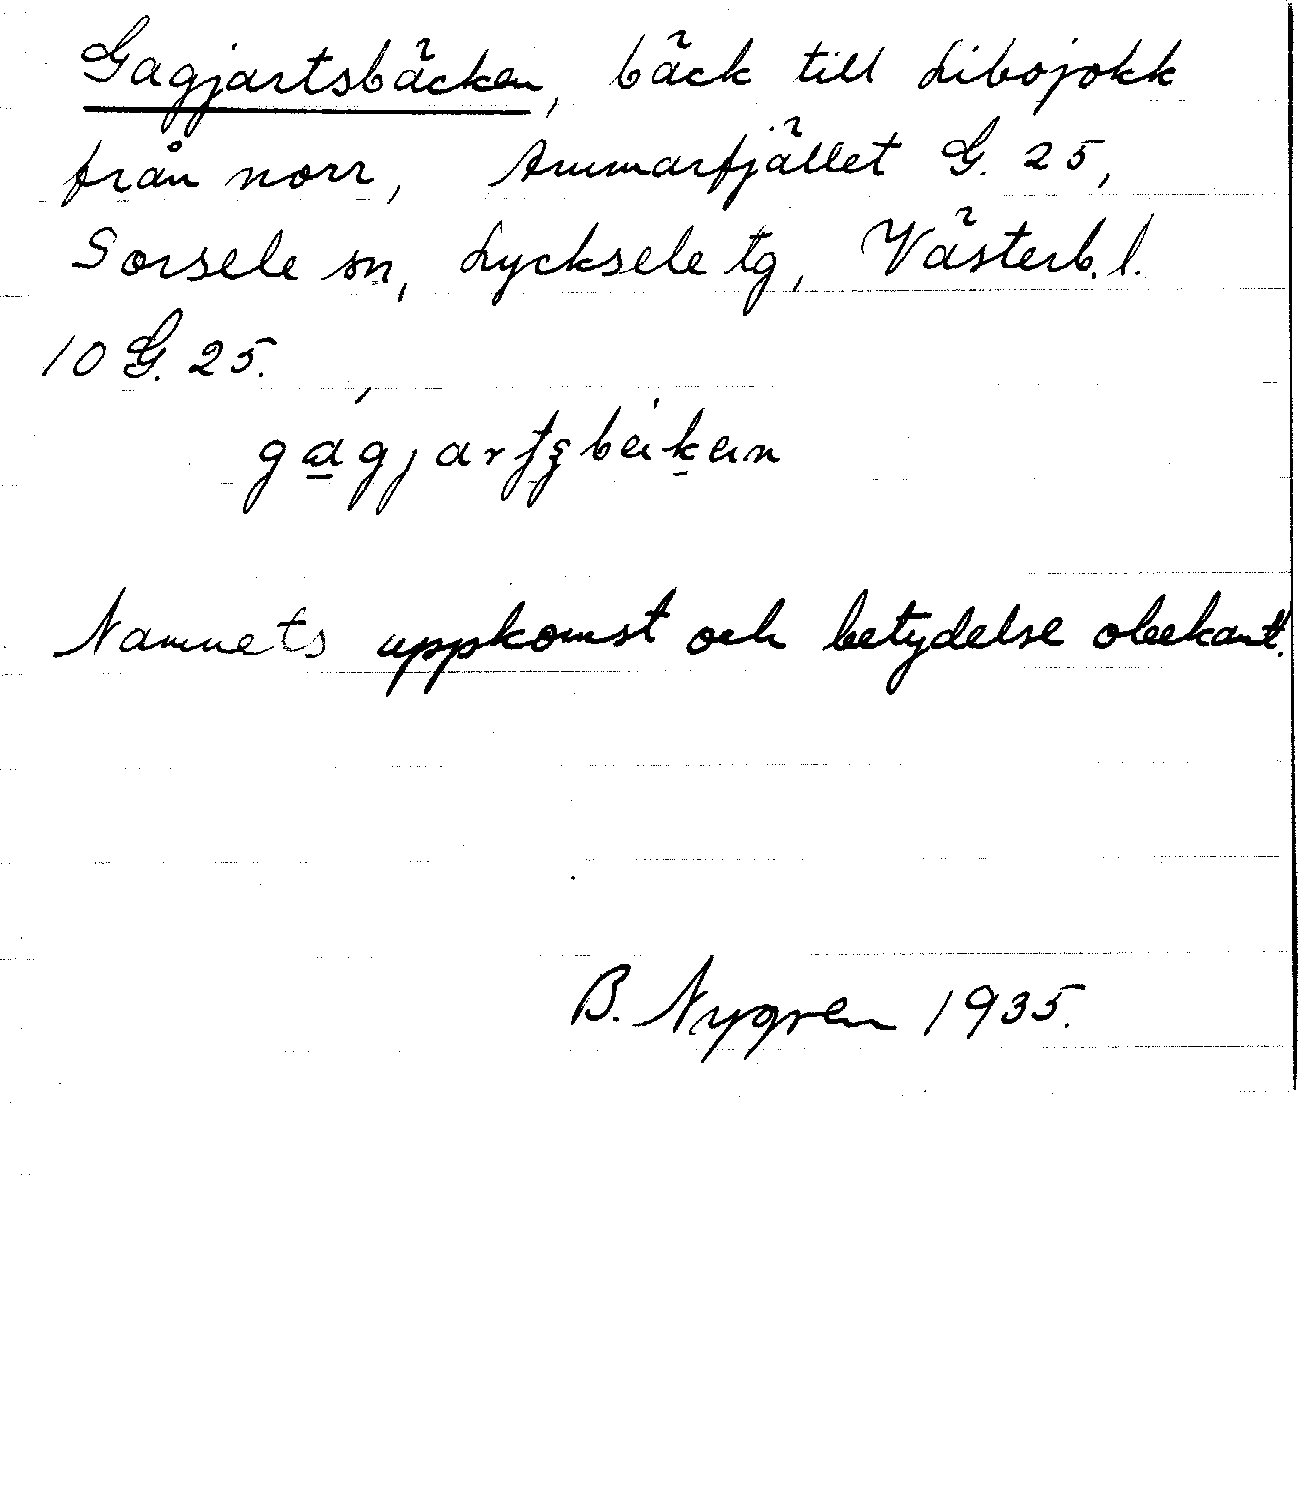 Gagjartsbäcken, bäck till Libojokk
från norr, Ammarfjället G. 25,
Sorsele sn, Lycksele tg, Västerb. l.
10 G. 25.
Namnets uppkomst och betydelse obekant.
B. Nygren 1935.